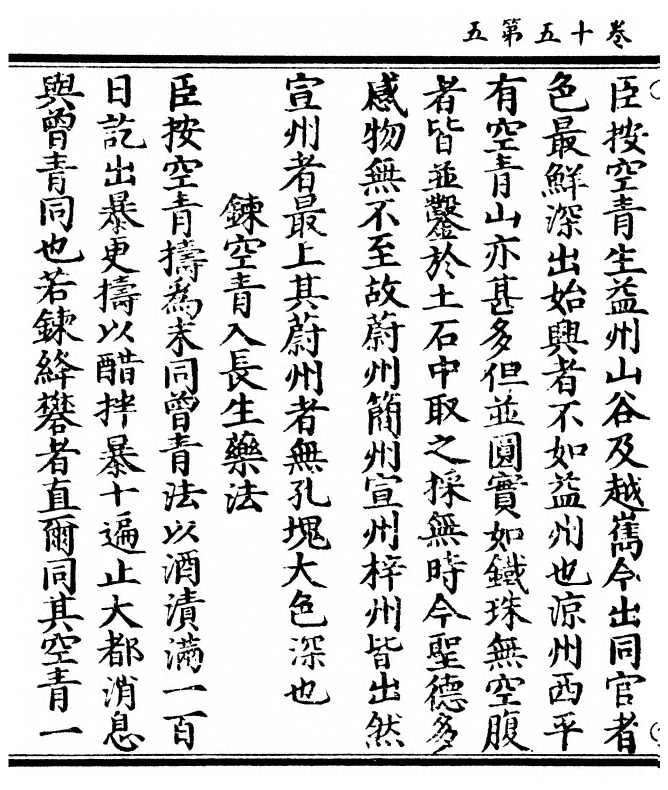 卷十五第五
臣按空青生益州山谷及越嶲今出同官者
色最鮮深出始興者不如益州也涼州西平
有空青山亦甚多但並圓實如鐵珠無空腹
者皆並鑿於土石中取之採無時今聖德多
感物無不至故蔚州簡州宣州梓州皆出然
宣州者最上其蔚州者無孔塊大色深也
鍊空青入長生藥法
臣按空青擣為末同曾青法以酒漬滿一百
日訖出暴更擣以醋拌暴十遍止大都消息
與曾青同也若鍊絳礬者直爾同其空青一